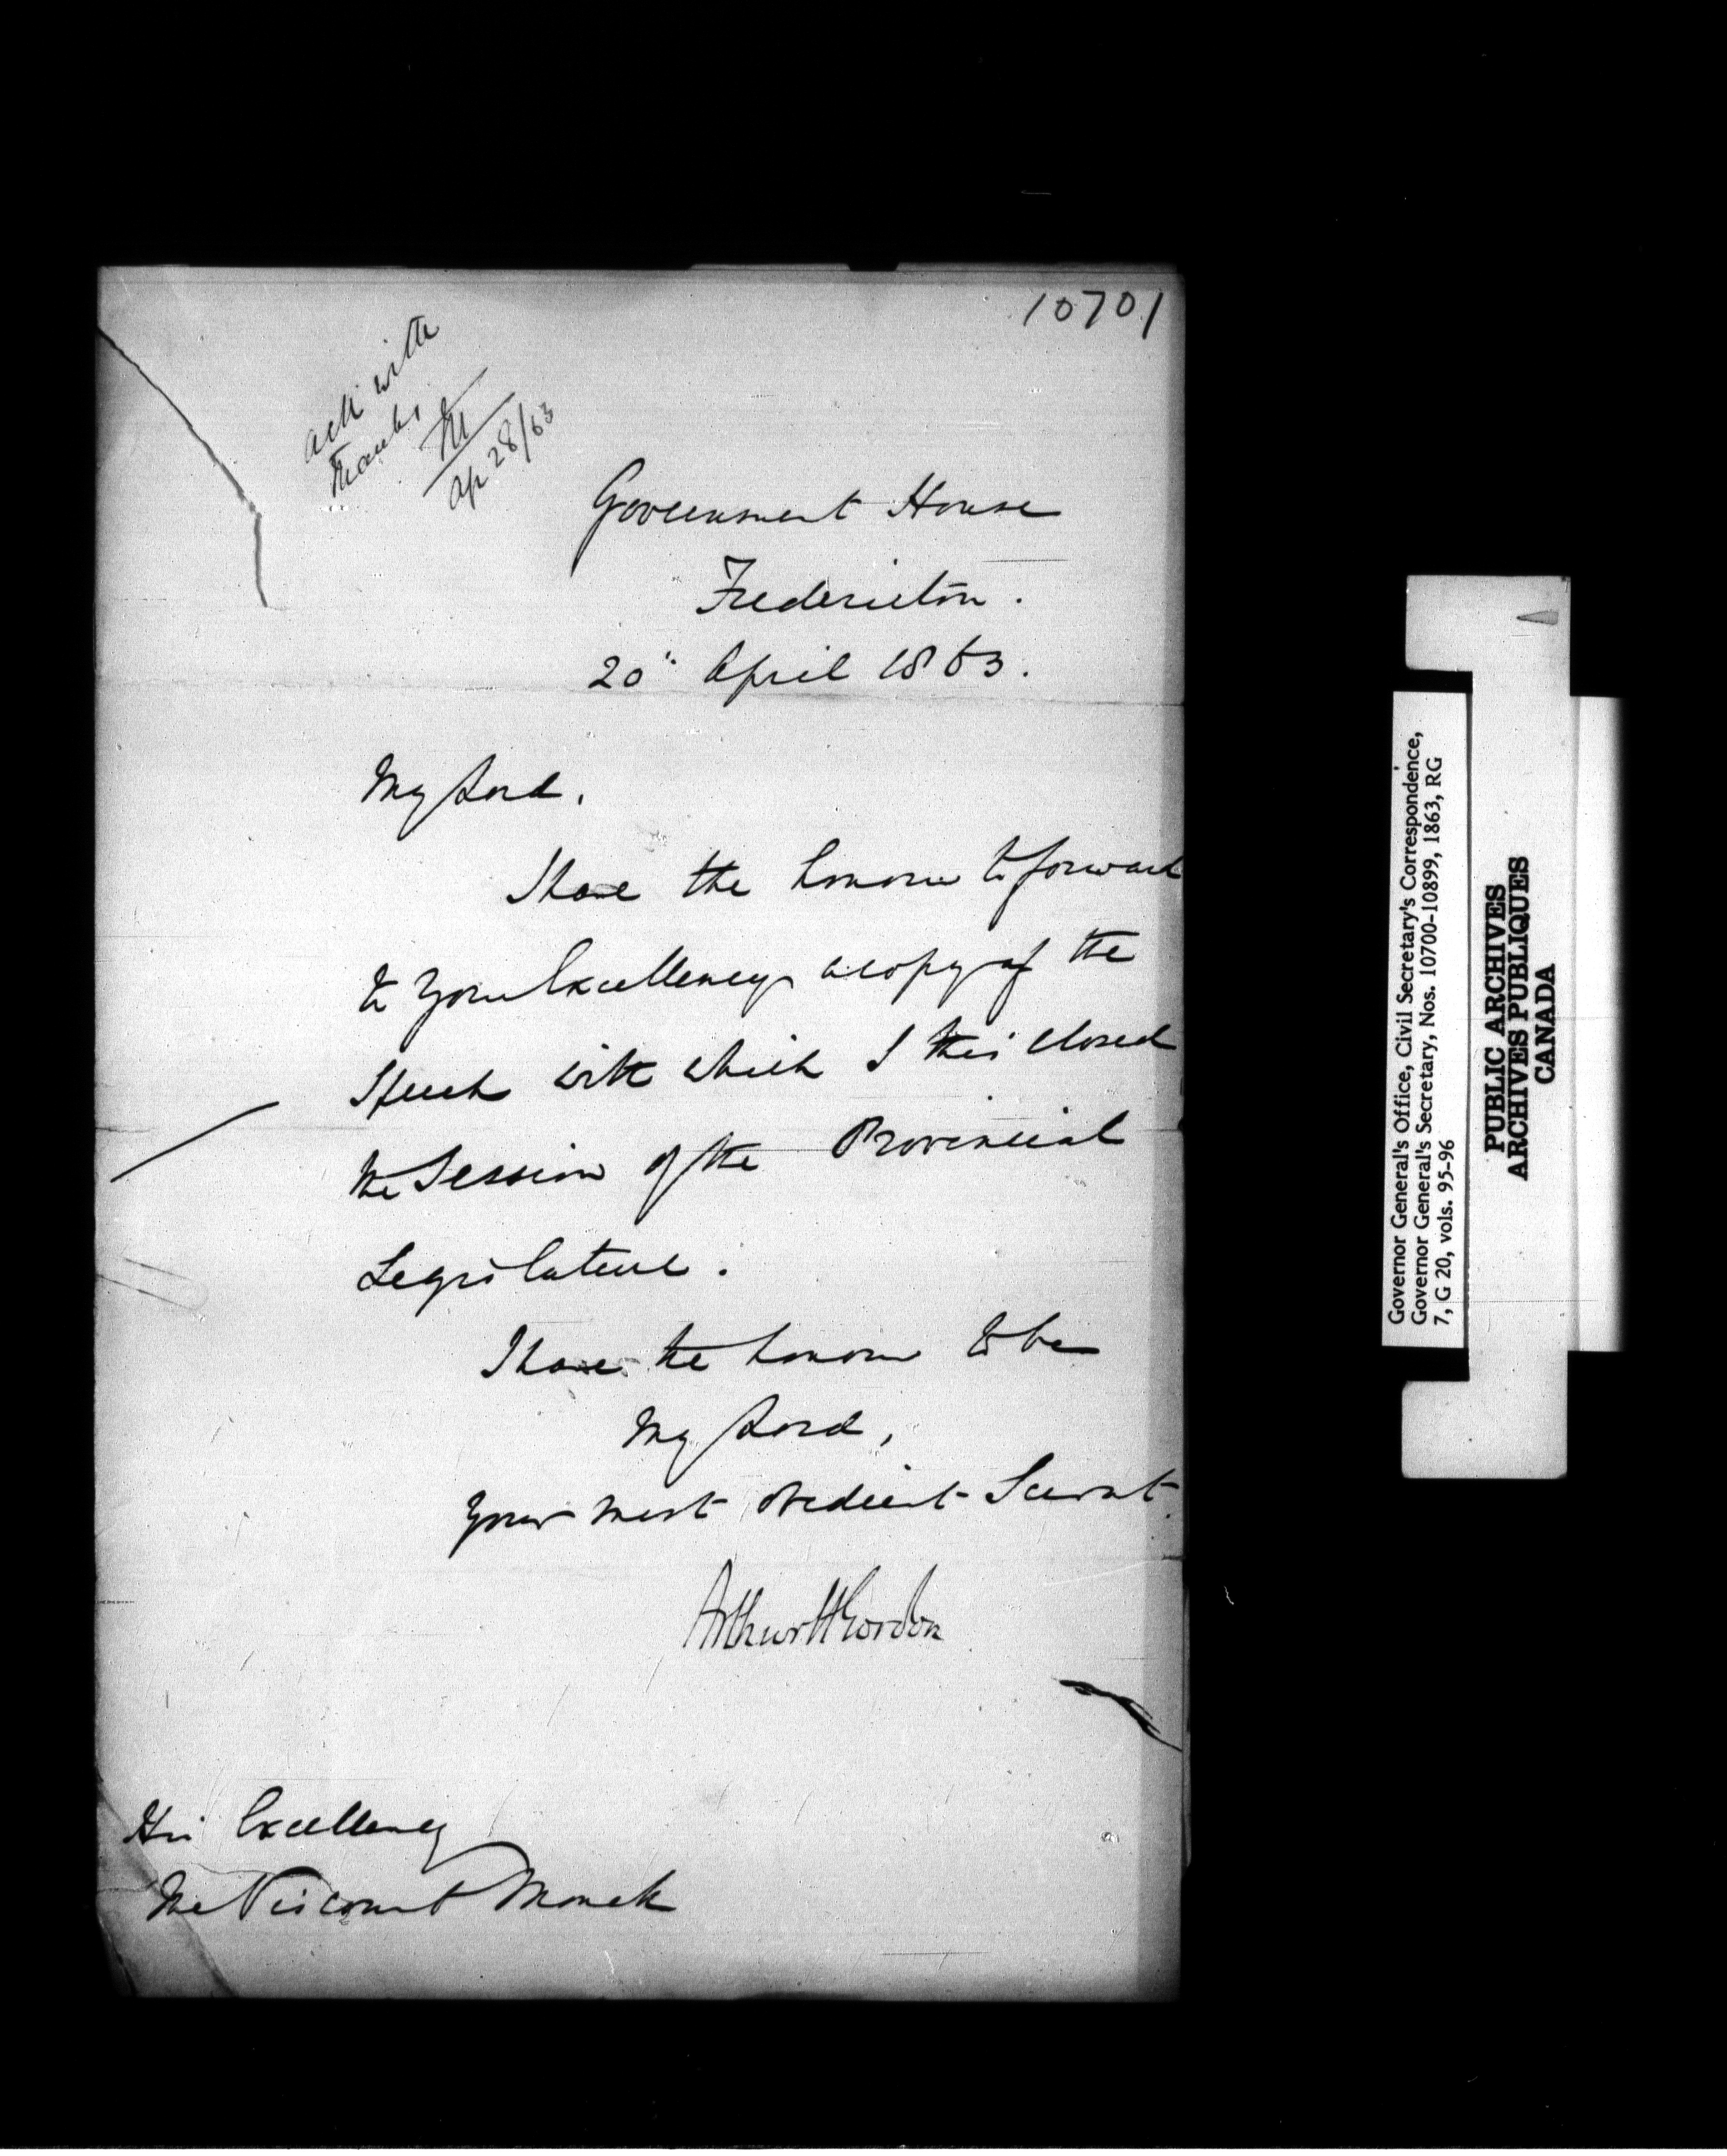 10701
Ack with
thanks
M
Ap 28/63
Government House
Fredericton.
20" April 1863.
My Lord.
I have the honour to forward
to Your Excellency a copy of the
Speech with which I this closed
the Session of the Provincial
Legislature.
I have the honour to be
My Lord,
Your most obedient Servant.
Arthur H Gordon
His Excellency
The Viscount Monck
Governor General's Office, Civil Secretary's Correspondence,
Governor General's Secretary, Nos. 10700-10899, 1863, RG
7, G 20, vols. 95-96
PUBLIC ARCHIVES
ARCHIVES PUBLIQUES
CANADA